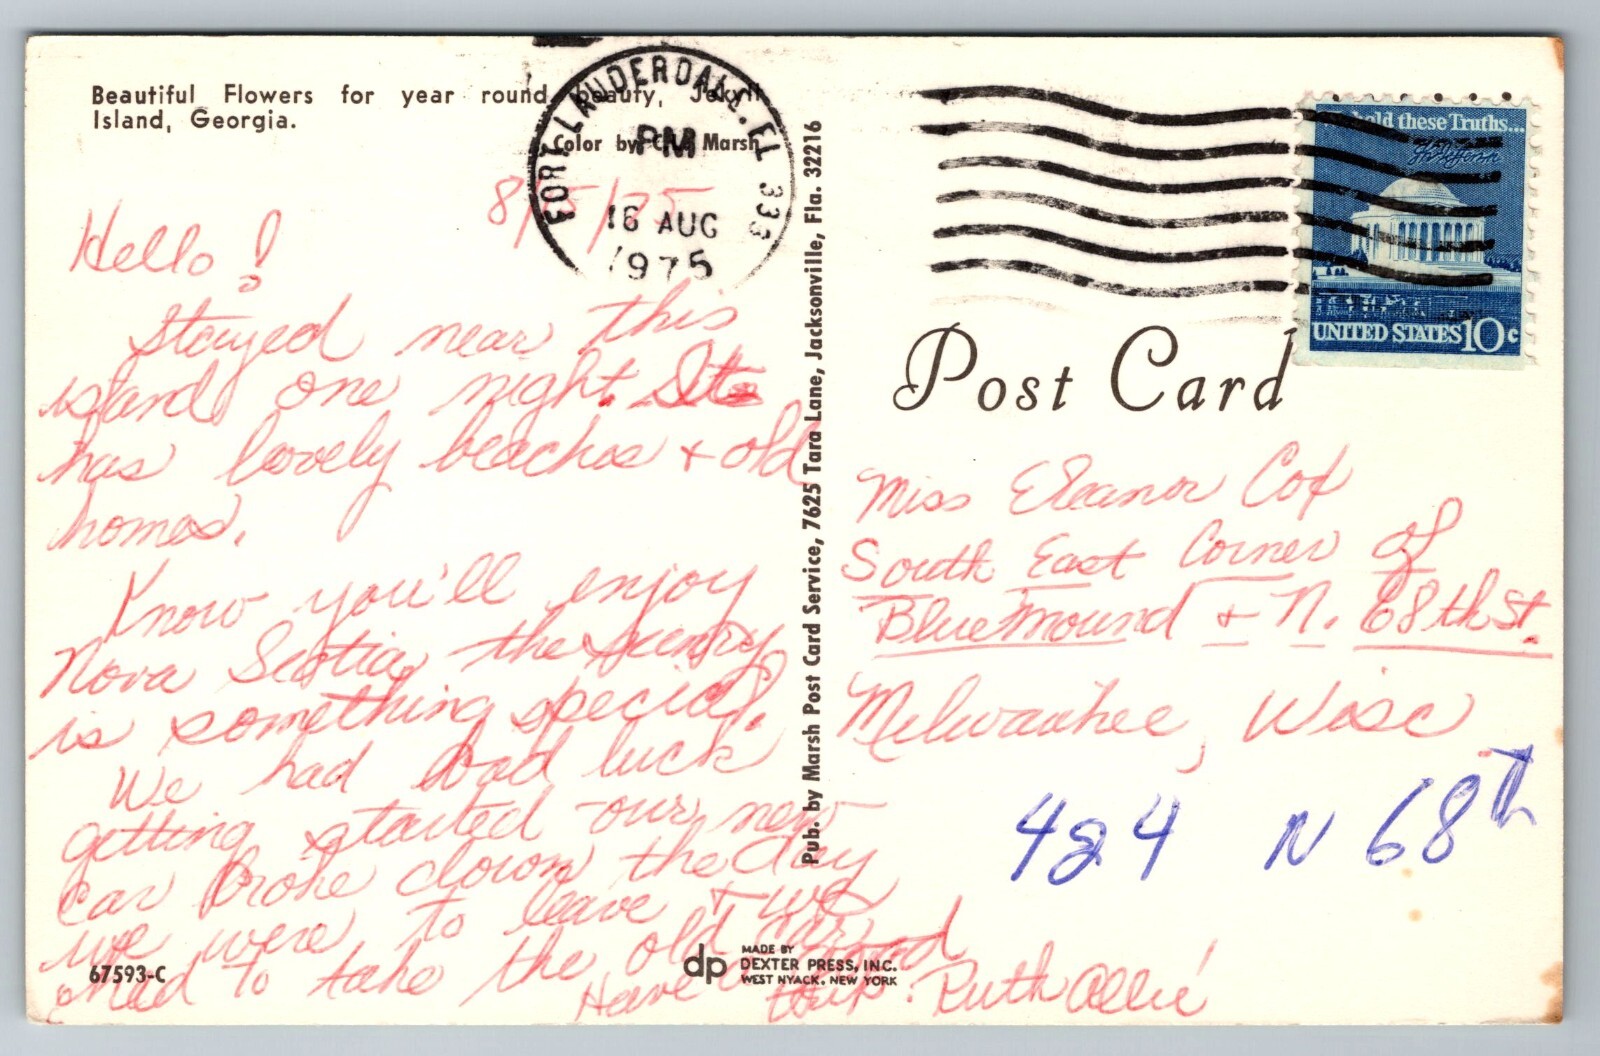 Beautiful Flowers for year round beauty, Jekyll
Island, Georgia.
Color by Marsh
FORT LAUDERDALE. FL 333
PM
16 AUG
1975
8/15/75
Hello!
Stayed near this
island one night. Its
has lovely beaches + old
homes.
Know you'll enjoy
Nova Scotia, the scenery
is something special.
We had bad luck
getting started - our new
car broke down the day
we were to leave + we
had to take the old car.
Have a good
trip. Ruth Allie
67593-C
Pub. by Marsh Post Card Service, 7625 Tara Lane, Jacksonville, Fla. 32216
dp MADE BY
DEXTER PRESS, INC.
WEST NYACK, NEW YORK
hold these Truths...
UNITED STATES 10c
Post Card
Miss Eleanor Cox
South East Corner of
Bluemound + N. 68th St.
Milwaukee, Wisc
424 N 68th